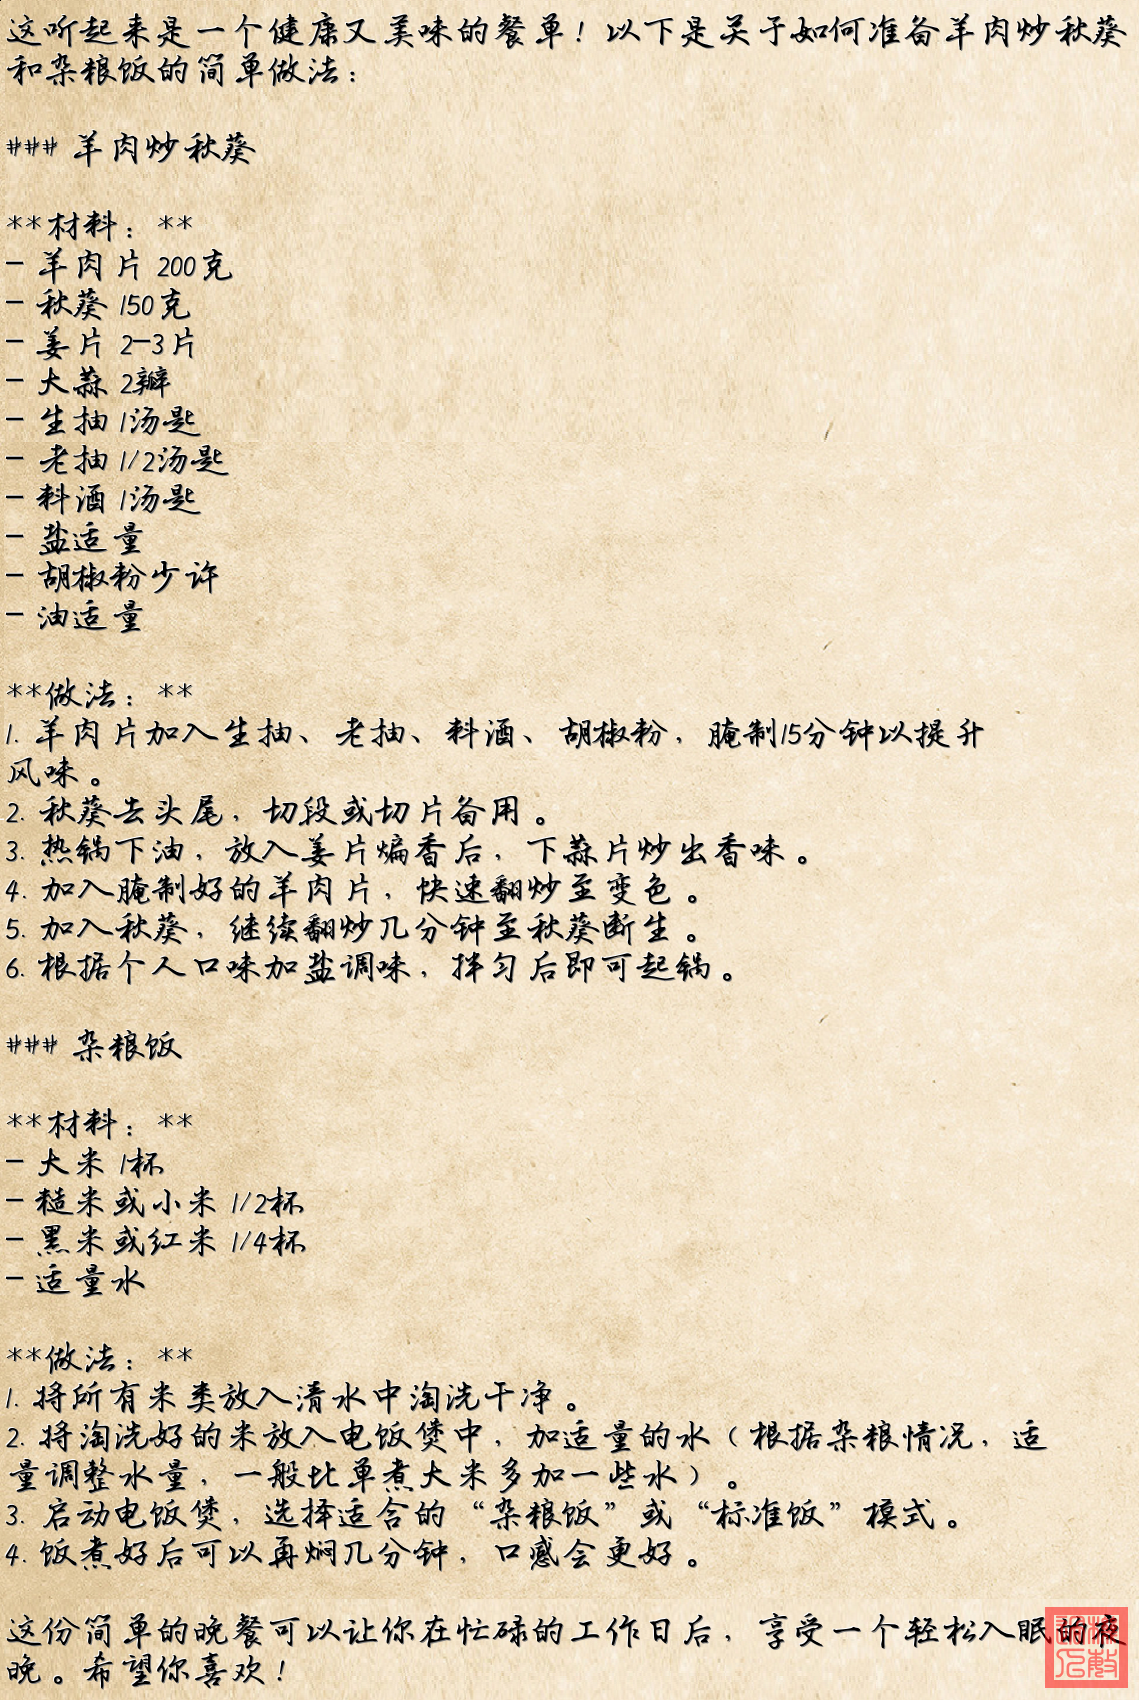 这听起来是一个健康又美味的餐单！以下是关于如何准备羊肉炒秋葵
和杂粮饭的简单做法：
### 羊肉炒秋葵
**材料：**
- 羊肉片 200克
- 秋葵 150克
- 姜片 2-3片
- 大蒜 2瓣
- 生抽 1汤匙
- 老抽 1/2汤匙
- 料酒 1汤匙
- 盐适量
- 胡椒粉少许
- 油适量
**做法：**
1. 羊肉片加入生抽、老抽、料酒、胡椒粉，腌制15分钟以提升
风味。
2. 秋葵去头尾，切段或切片备用。
3. 热锅下油，放入姜片煸香后，下蒜片炒出香味。
4. 加入腌制好的羊肉片，快速翻炒至变色。
5. 加入秋葵，继续翻炒几分钟至秋葵断生。
6. 根据个人口味加盐调味，拌匀后即可起锅。
### 杂粮饭
**材料：**
- 大米 1杯
- 糙米或小米 1/2杯
- 黑米或红米 1/4杯
- 适量水
**做法：**
1. 将所有米类放入清水中淘洗干净。
2. 将淘洗好的米放入电饭煲中，加适量的水（根据杂粮情况，适
量调整水量，一般比单煮大米多加一些水）。
3. 启动电饭煲，选择适合的“杂粮饭”或“标准饭”模式。
4. 饭煮好后可以再焖几分钟，口感会更好。
这份简单的晚餐可以让你在忙碌的工作日后，享受一个轻松入眠的夜
晚。希望你喜欢！